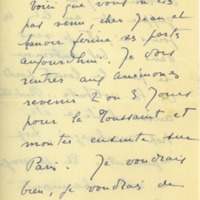 Voici que vous n'êtes
pas venu, cher Jean et
Lavoir ferme ses ports
aujourd'hui. Je dois
rentrer aux anémones
revenir 2 ou 3 jours
pour la Toussaint et
monter ensuite sur
Paris. Je voudrais
bien, je voudrais de